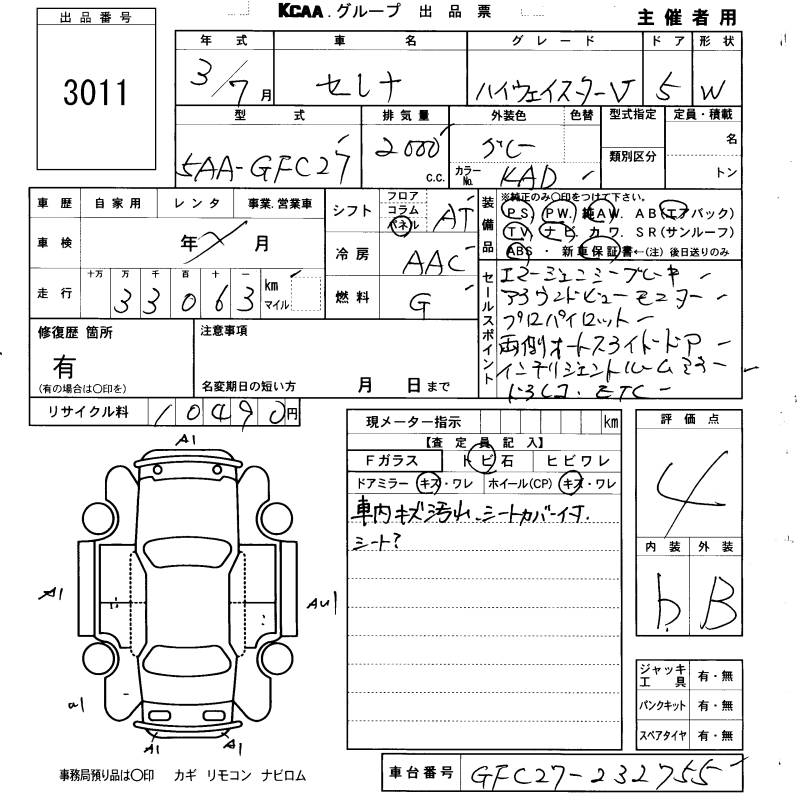 KCAA.グループ 出品票
主催者用
出品番号
3011
年式 車名 グレード ドア 形状
3/7月 セレナ ハイウェイスターV 5 W
型式 排気量 外装色 色替 型式指定 定員・積載
5AA-GFC27 2000 c.c. グレー 類別区分 名
カラーNo. KAD トン
車歴 自家用 レンタ 事業.営業車
車検 年 月
走行 十万 万 千 百 十 一
33063 km マイル
シフト フロア コラム パネル AT
冷房 AAC
燃料 G
装備品 ※純正のみ〇印をつけて下さい。
PS. PW. 純AW. AB(エアバック)
TV. ナビ. カワ. SR(サンルーフ)
ABS・新車保証書←(注)後日送りのみ
セールスポイント
エマージェンシーブレーキ
アラウンドビューモニター
プロパイロット
両側オートスライドドア
インテリジェントルームミラー
ドラレコ. ETC
修復歴 箇所
有
(有の場合は〇印を)
注意事項
名変期日の短い方 月 日まで
リサイクル料 10490円
現メーター指示 km
【査定員記入】
Fガラス トビ石 ヒビワレ
ドアミラー キズ・ワレ ホイール(CP) キズ・ワレ
車内キズ汚れ、シートカバー付.
シート?
評価点
4
内装 外装
b B
ジャッキ工具 有・無
パンクキット 有・無
スペアタイヤ 有・無
A1
A1
AU1
a1
A1
A1
事務局預り品は〇印 カギ リモコン ナビロム
車台番号 GFC27-232755